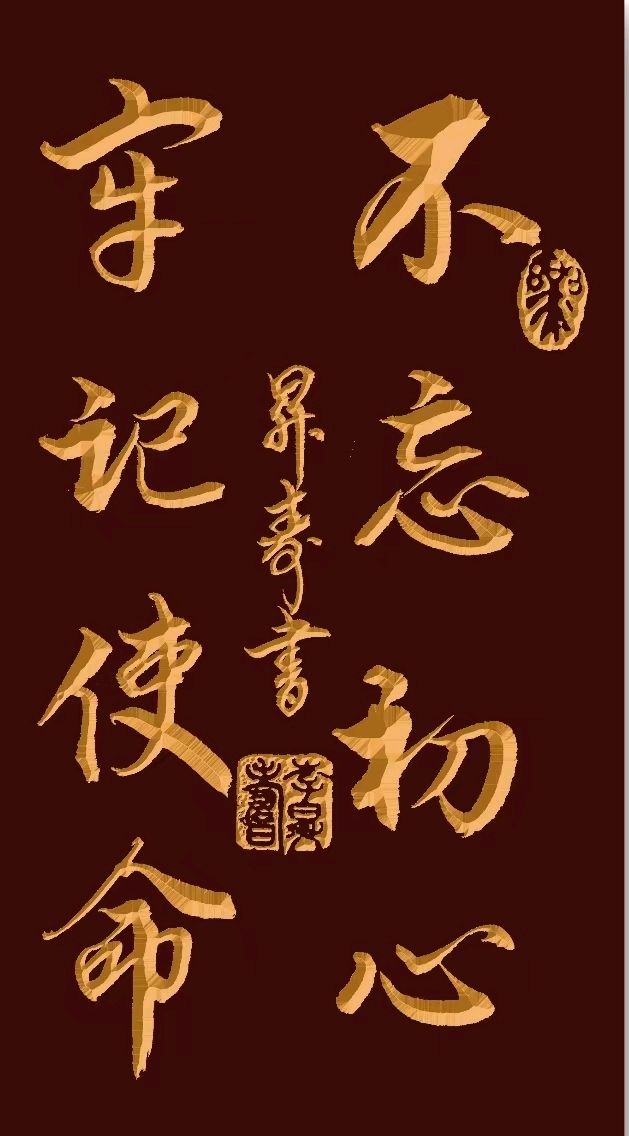 不忘初心
牢记使命
昇寿书